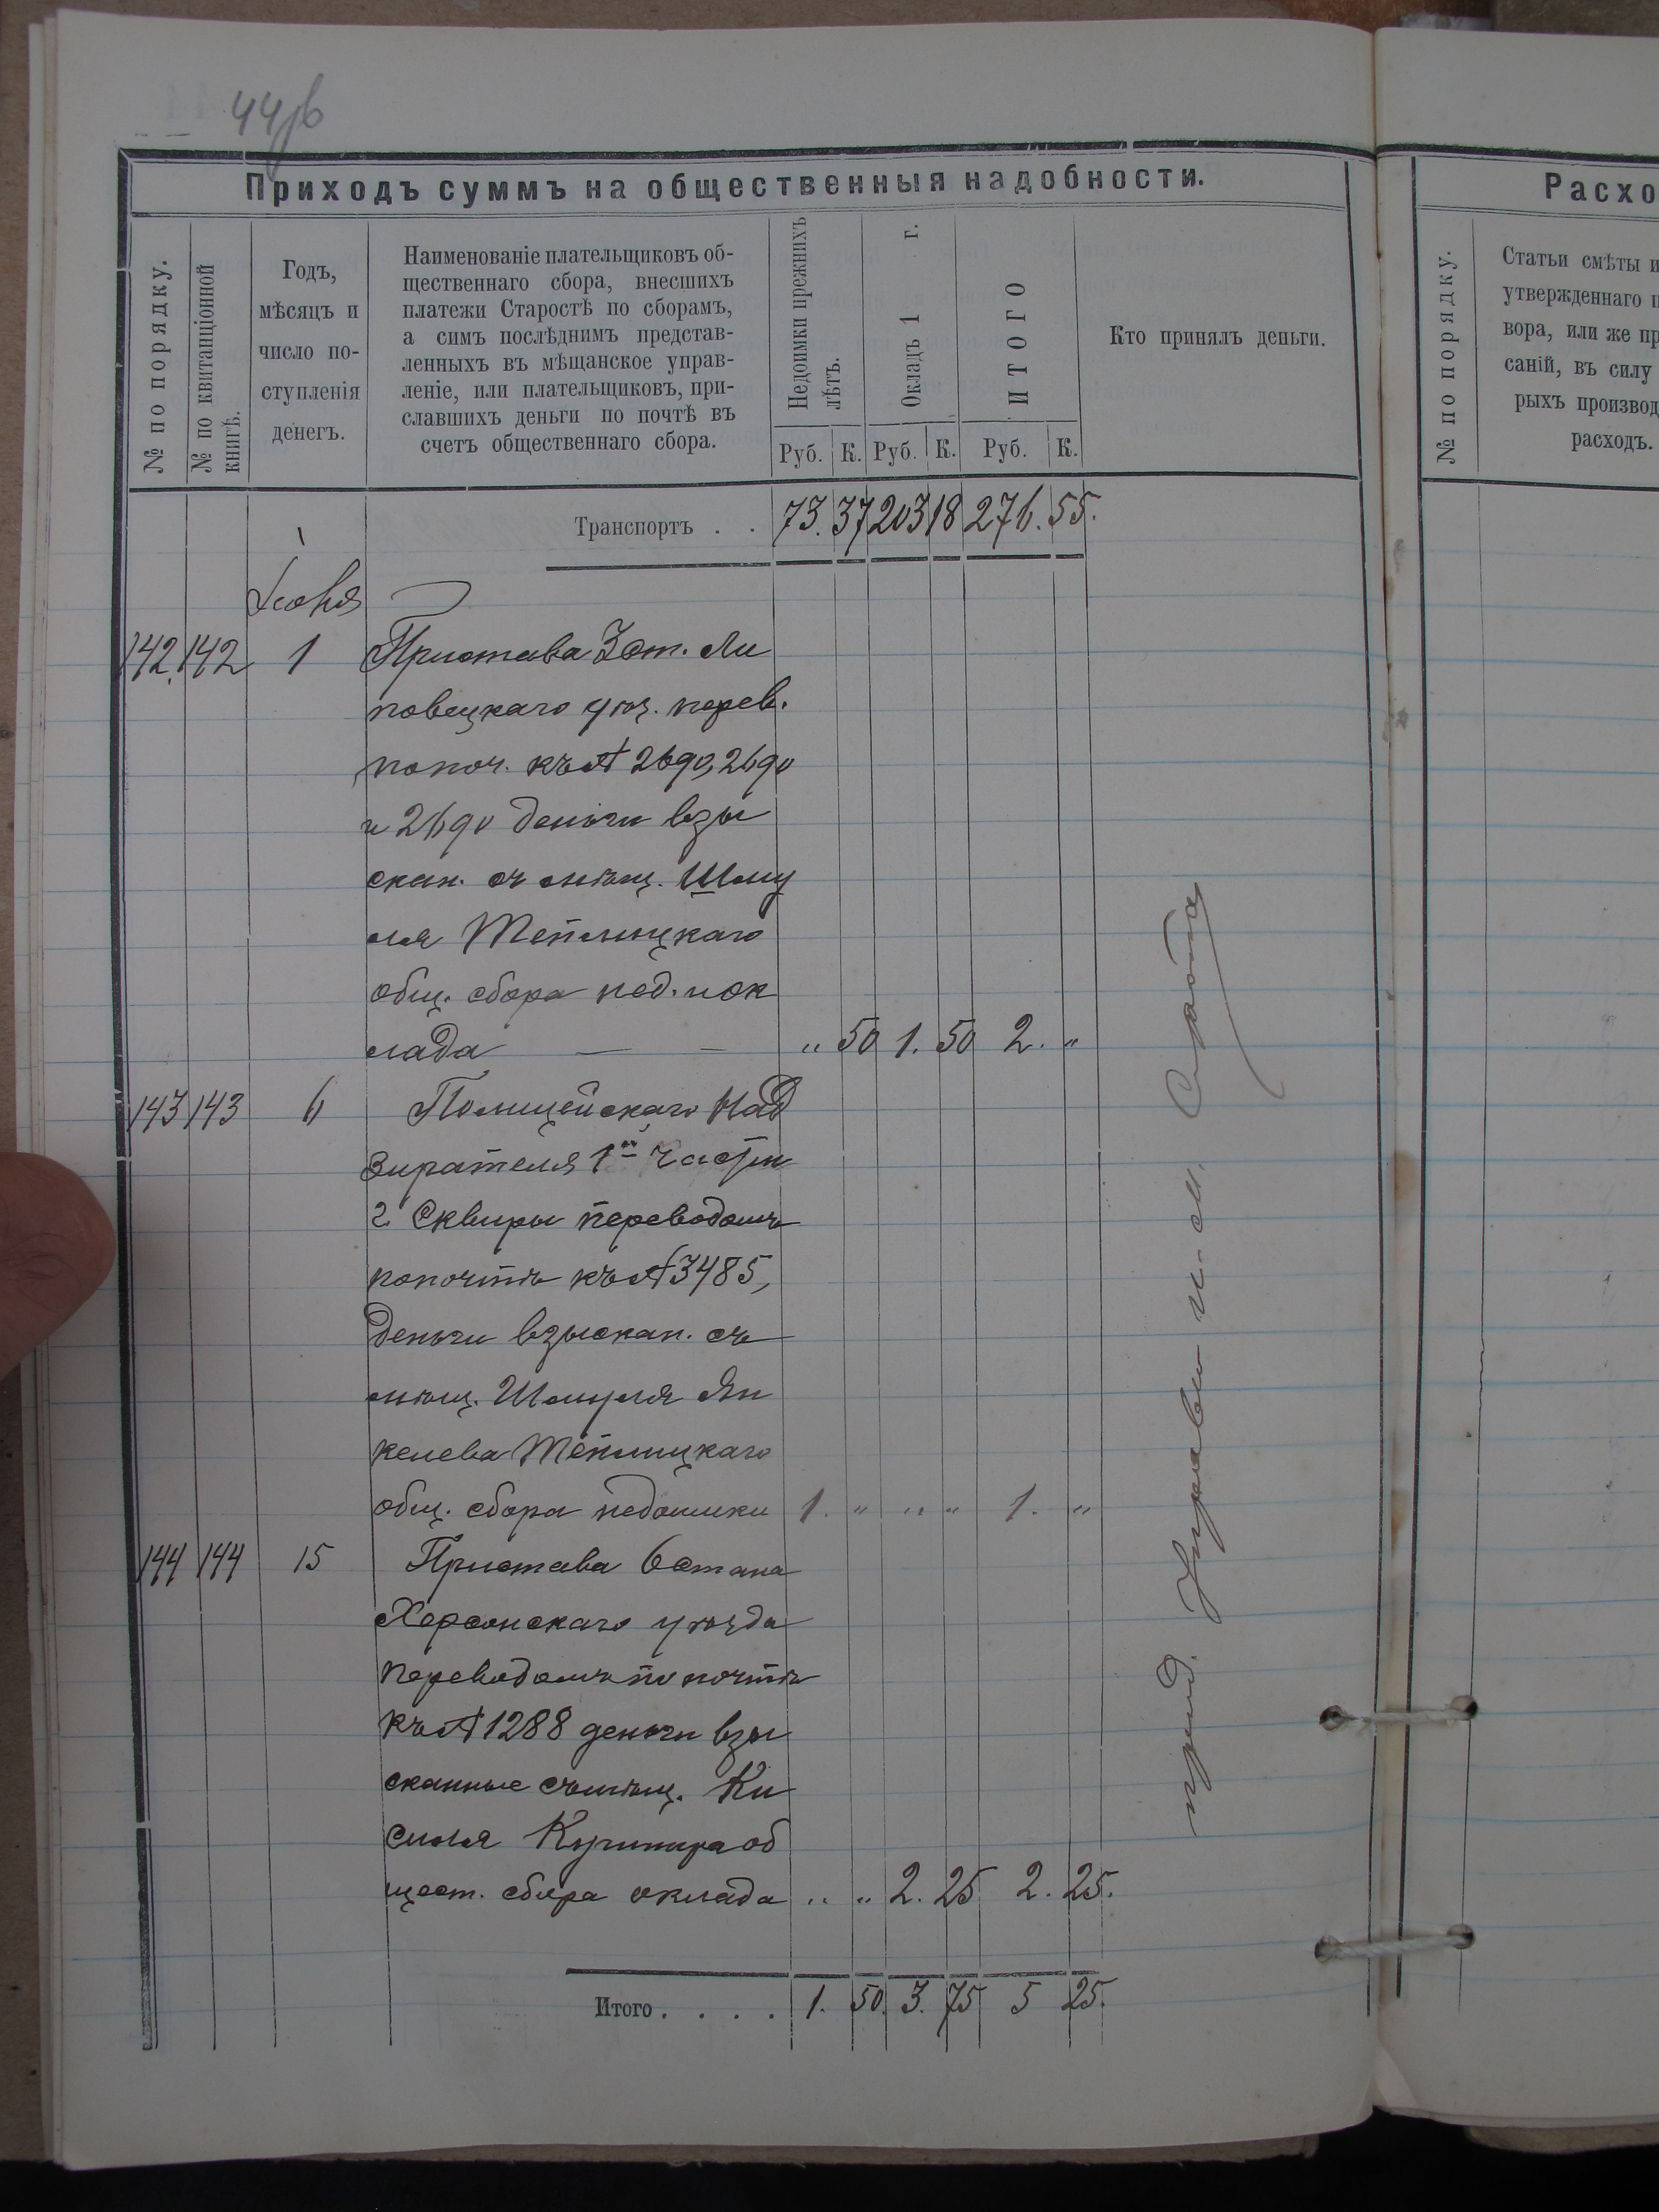 44об
Приходъ суммъ на общественныя надобности.
№ по порядку.
№ по квитанціонной
книгѣ.
Годъ,
мѣсяцъ и
число по-
ступленія
денегъ.
Наименованіе плательщиковъ об-
щественнаго сбора, внесшихъ
платежи Старостѣ по сборамъ,
а симъ послѣднимъ представ-
ленныхъ въ мѣщанское управ-
леніе, или плательщиковъ, при-
славшихъ деньги по почтѣ въ
счетъ общественнаго сбора.
Недоимки прежнихъ
лѣтъ.
Окладъ 1 г.
ИТОГО
Кто принялъ деньги.
Руб. К. Руб. К. Руб. К.
Транспортъ . . 73. 37 203 18 276. 55.
Іюня
142. 142 1 Пристава 3 ст. Ли
повецкаго уѣз. перев.
попоч. къ № 2690, 2690
и 2690 деньги взы
скан. съ мѣщ. Шму
ля Теплицкаго
общ. сбора нед. и ок
лада — — " 50 1. 50 2. "
143 143 6 Полицейскаго Над
зирателя 1й Части
г. Сквиры переводомъ
попочтѣ къ № 3485,
деньги взыскан. съ
мѣщ. Шмуля Ян
келева Теплицкаго
общ. сбора недоимки 1. " " " 1. "
144 144 15 Пристава 6 стана
Херсонскаго уѣзда
переводомъ по почтѣ
къ № 1288 деньги взы
сканные съ мѣщ. Ки
силя об
щест. сбора оклада " " 2. 25 2. 25.
Итого . . . . 1. 50. 3. 75 5 25.
Сирота
Расхо
№ по порядку.
Статьи смѣты и
утвержденнаго п
вора, или же пр
саній, въ силу
рыхъ производ
расходъ.